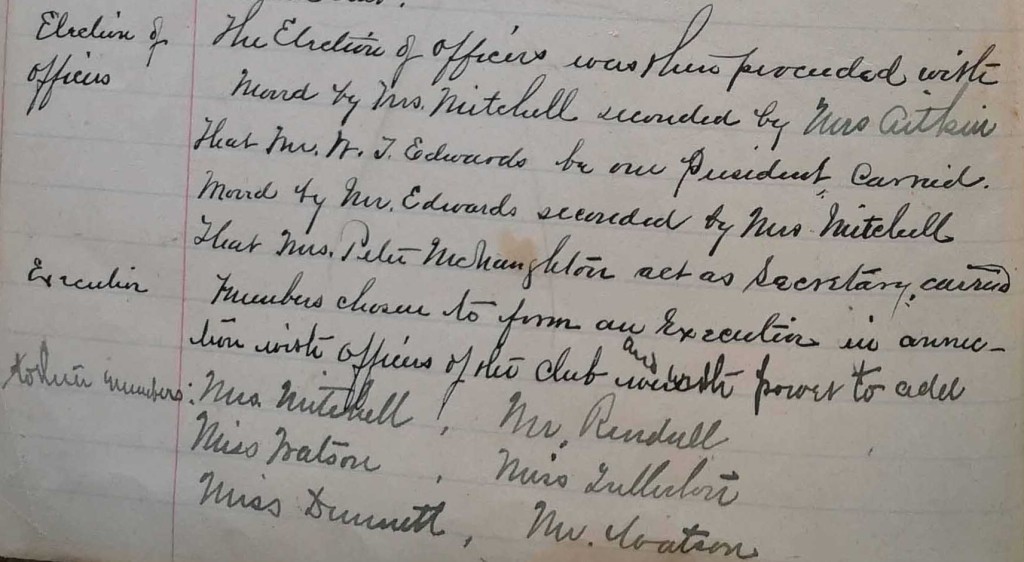 Election of
officers
The Election of officers was then proceeded with
Moved by Mrs. Mitchell seconded by Mrs Aitkin
That Mr. W. J. Edwards be our President, Carried.
Moved by Mr. Edwards seconded by Mrs. Mitchell
That Mrs. Peter McNaughton act as Secretary, carried
Executive
Members chosen to form an Executive in connec-
tion with officers of the club and with power to add
members:
Mrs. Mitchell, Mr. Rendull
Miss Watson, Miss Fullerton
Miss Dunnett, Mr. Watson